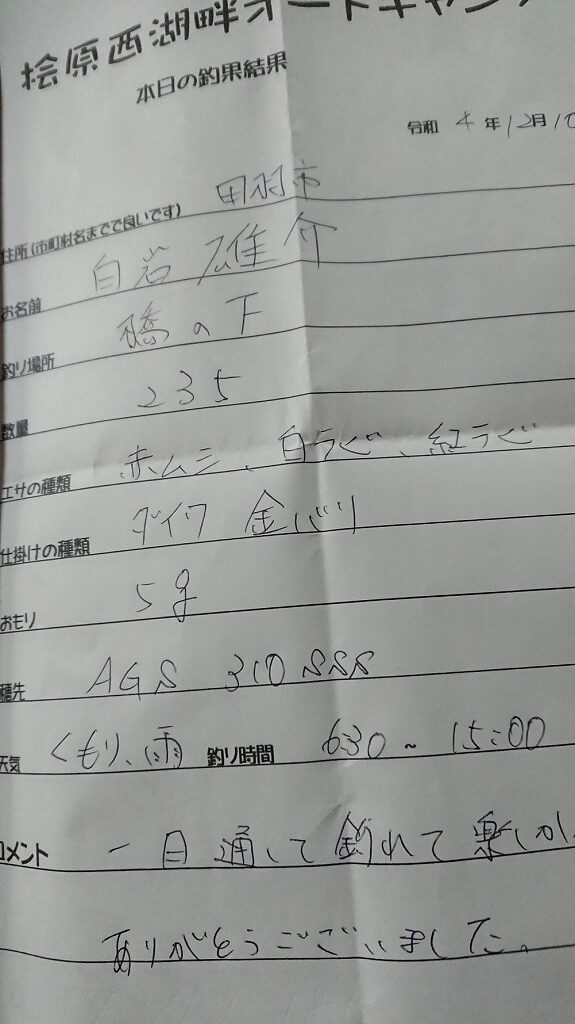 桧原西湖畔オートキャン
本日の釣果結果
令和 4 年 12月 10
住所(市町村名までで良いです) 田羽市
お名前 白岩 雄介
釣り場所 橋の下
数量 235
エサの種類 赤ムシ、白ラビ、紅ラビ
仕掛けの種類 ダイワ 金バリ
おもり 5g
穂先 AGS 310 SSS
天気 くもり、雨 釣り時間 630 ~ 15:00
コメント 一日通して釣れて楽しか
ありがとうございました。